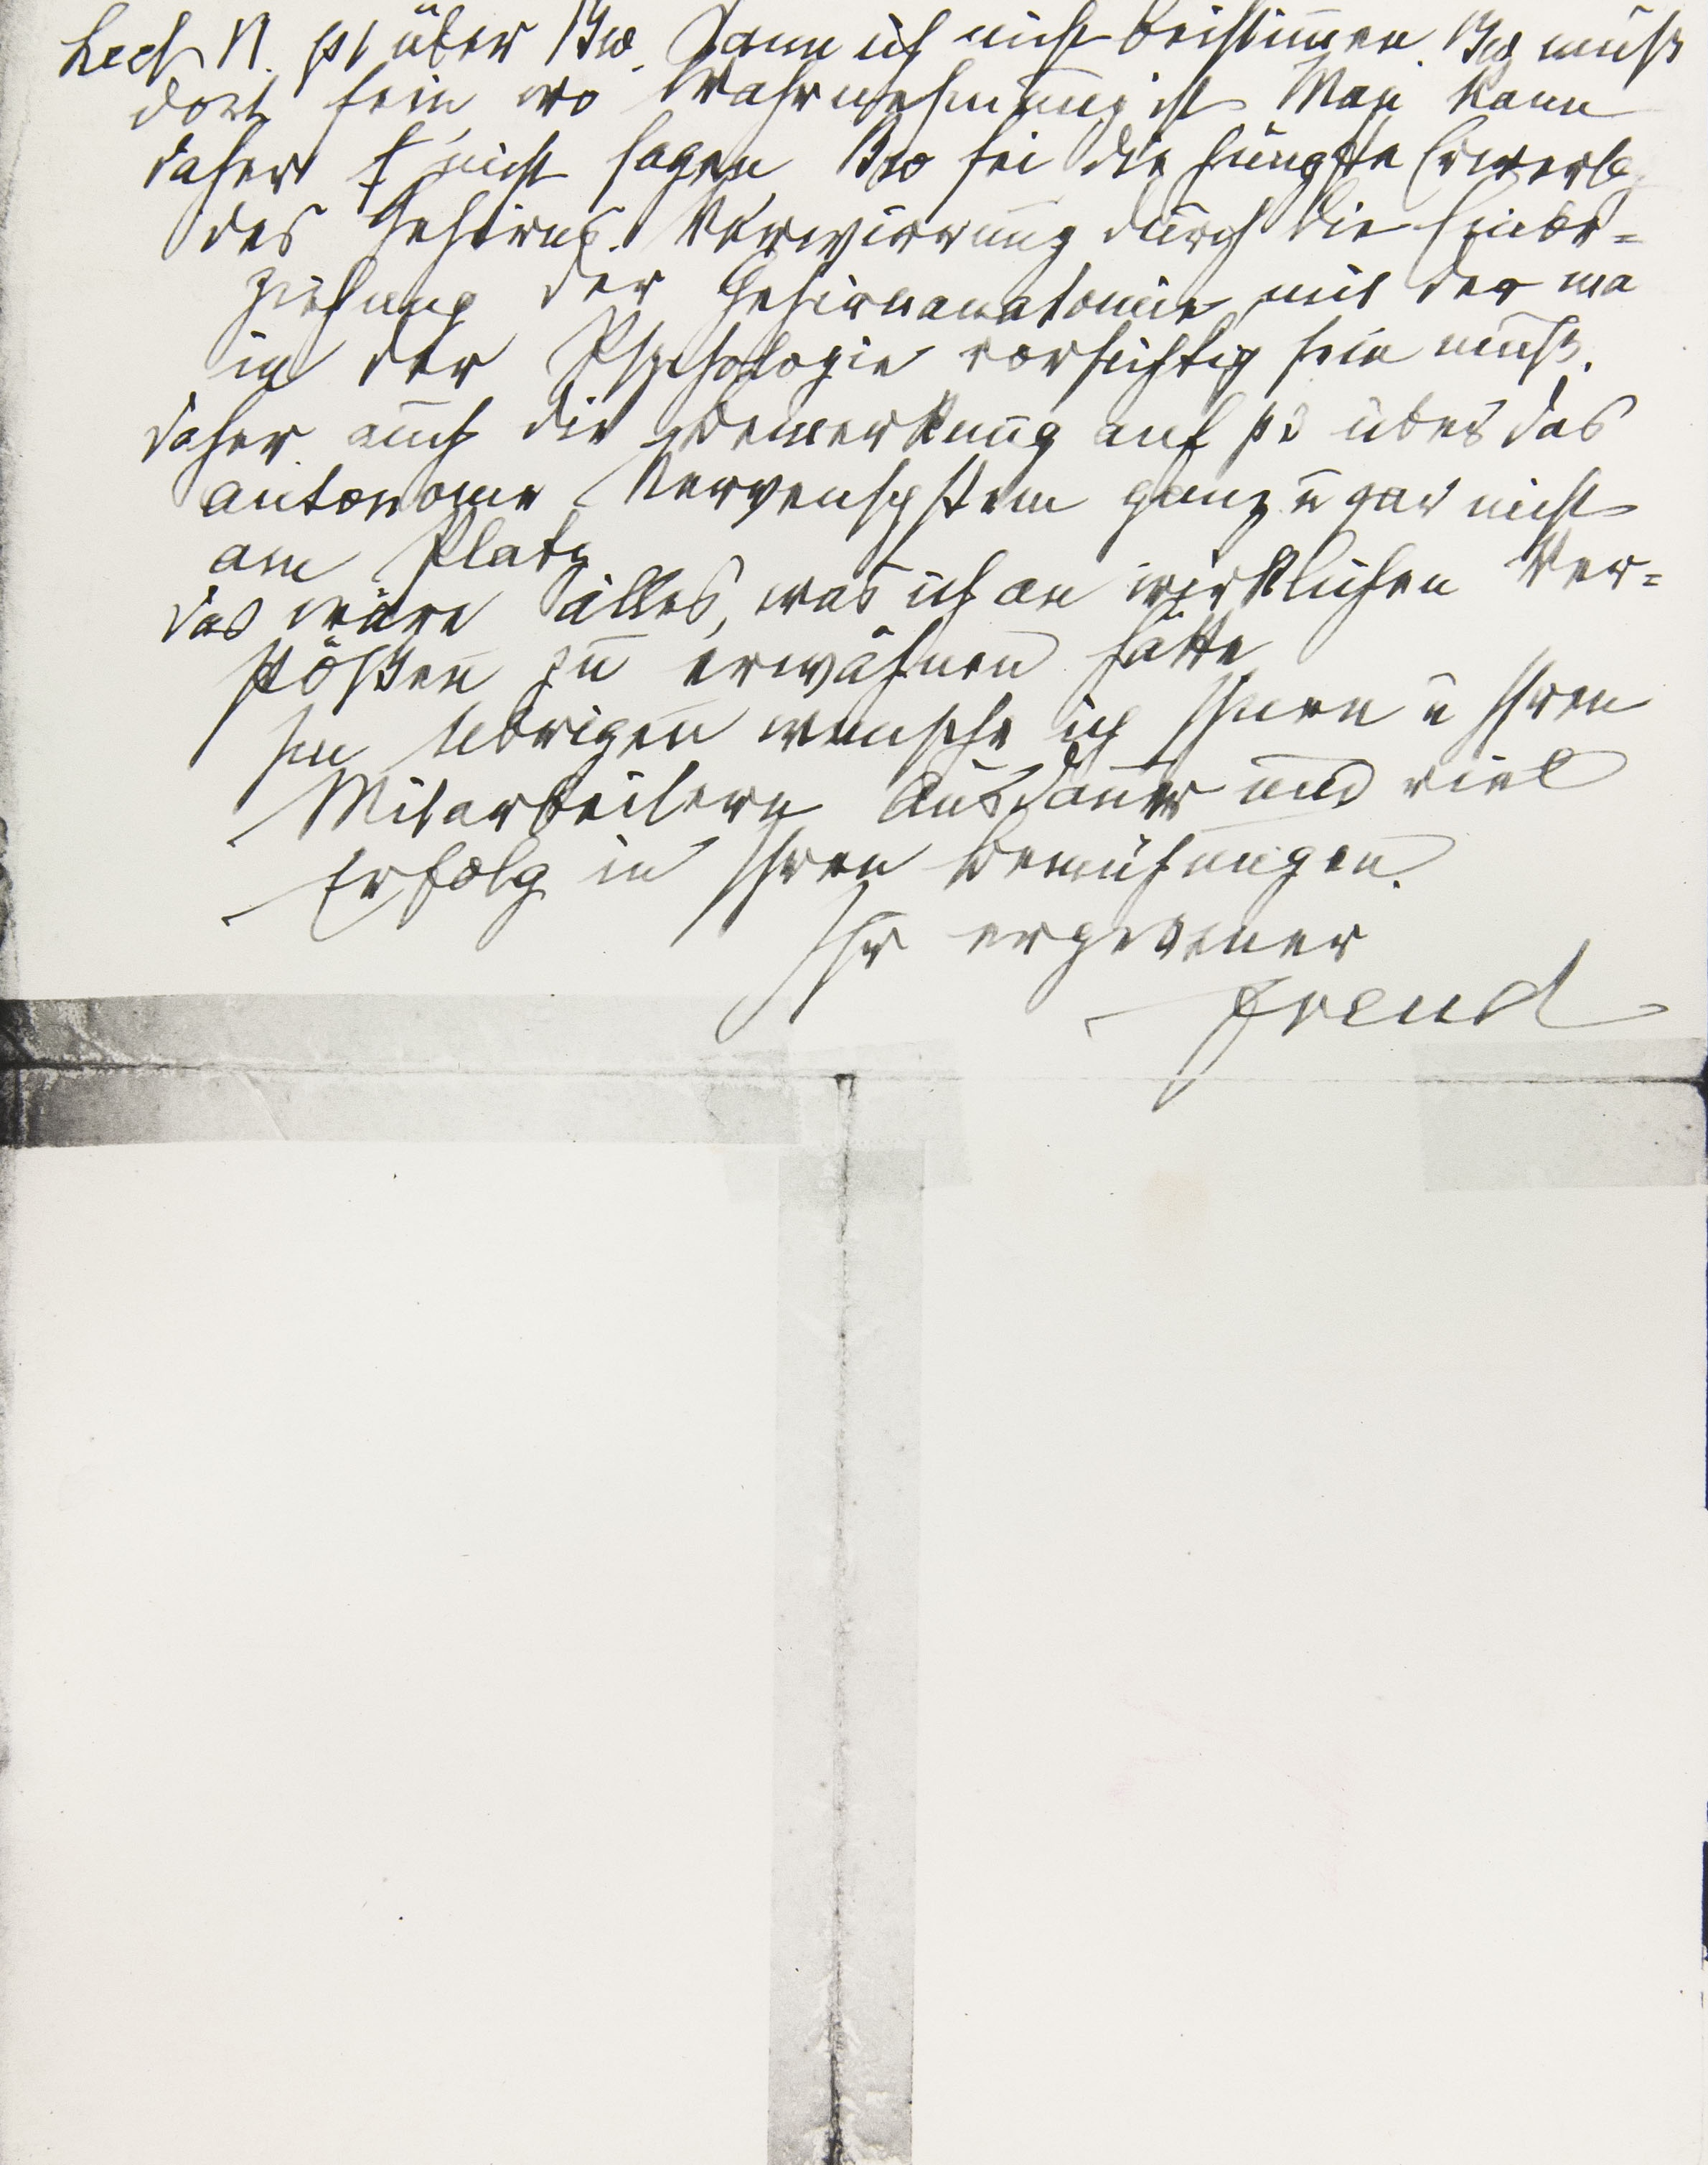 Lect N. p 1 über Bw. kann ich nicht beistimmen. Bw muß
dort sein wo Wahrnehmung ist Man kann
daher nicht sagen Bw sei die jüngste Erwerb
des Gehirns. Verwirrung durch die Einbe=
ziehung der Gehirnanatomie mit der ma
in der Psychologie vorsichtig sein muß.
daher auch die Bemerkung auf p 3 über das
autonome Nervensystem ganz u gar nicht
am Platz
das wäre alles, was ich an wirklichen Ver=
stößen zu erwähnen hätte
Im Uebrigen wünsche ich Ihnen u Ihren
Mitarbeitern Ausdauer und viel
Erfolg in Ihren Bemühungen.
Ihr ergebener
Freud